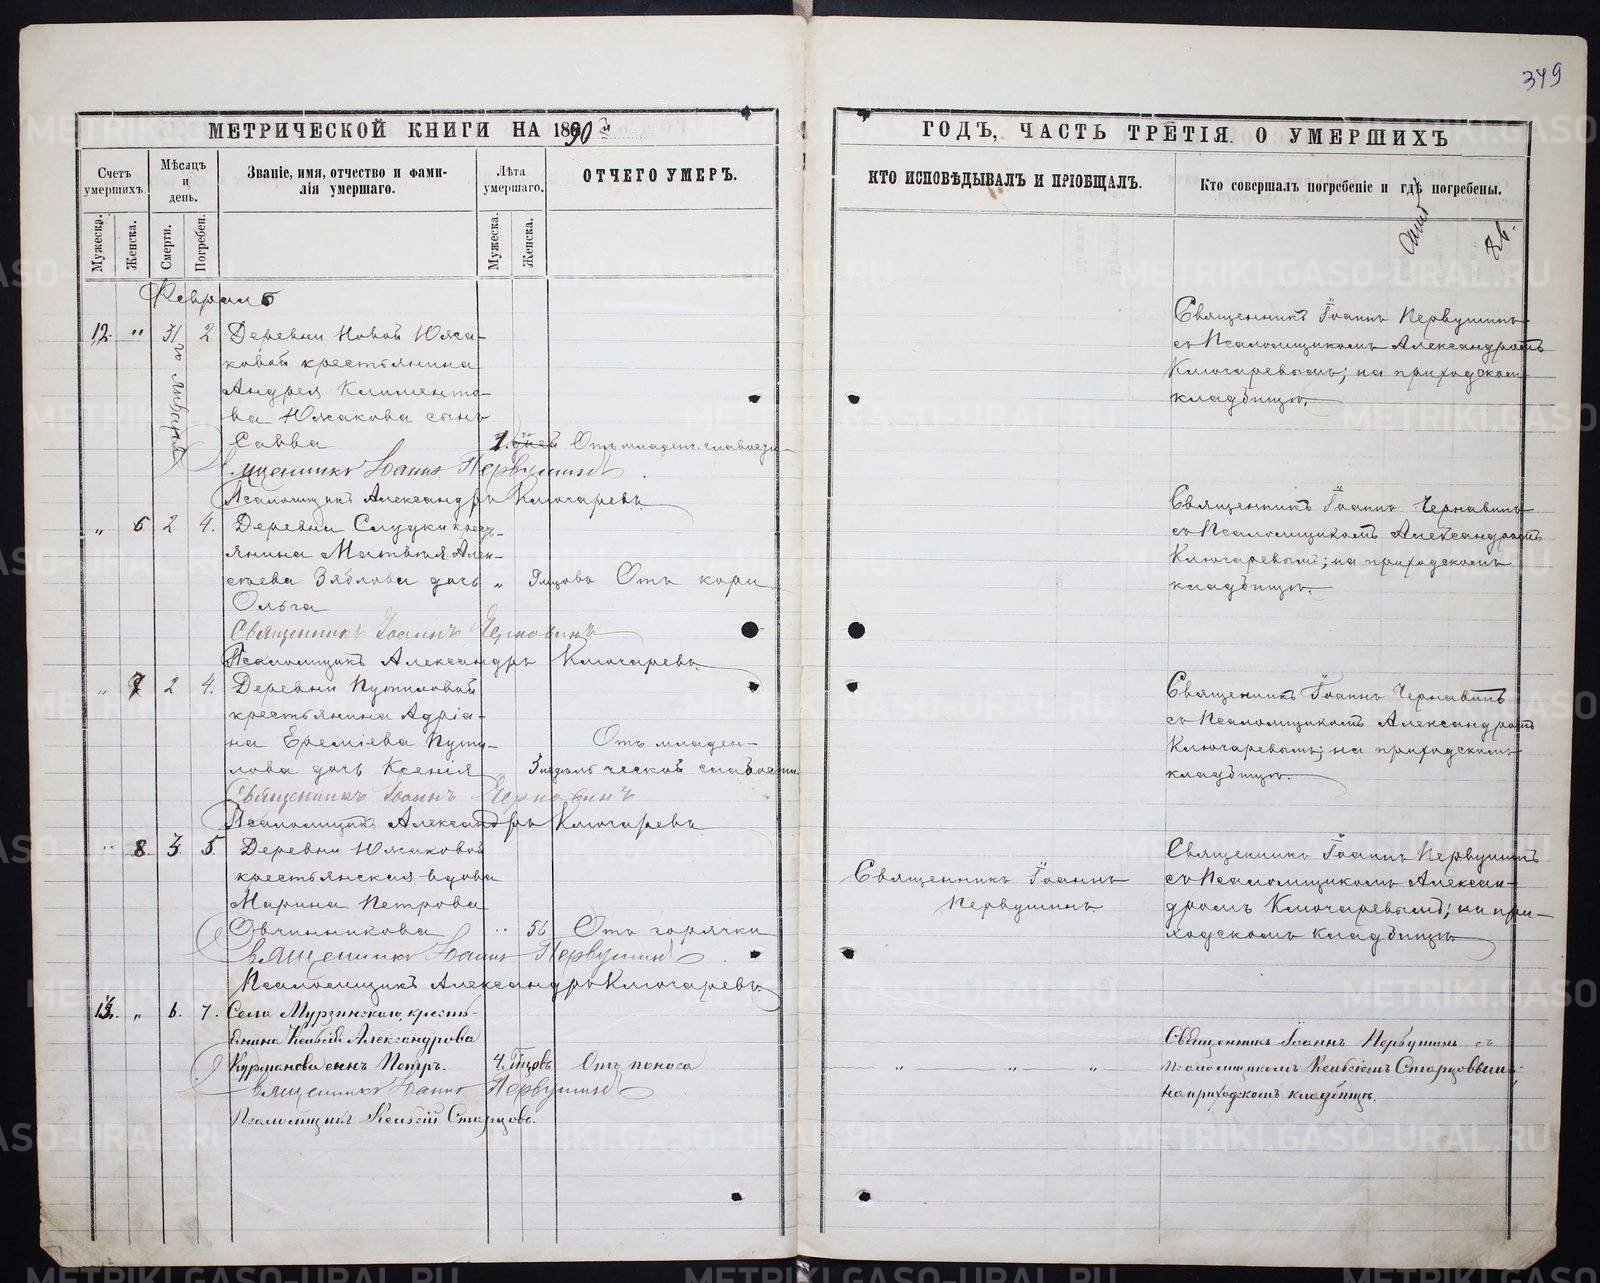 349
МЕТРИЧЕСКОЙ КНИГИ НА 1890 й
Счетъ умершихъ.
Мѣсяцъ и день.
Званіе, имя, отчество и фами-
лія умершаго.
Лѣта умершаго.
ОТЧЕГО УМЕРЪ.
Мужеска.
Женска.
Смерти.
Погребен.
Мужеска.
Женска.
Февраль
12. " 31 го января 2 Деревни Новой Южа-
ковой крестьянина
Андрея Клименто-
ва Южакова сынъ
Савва 1. Отъ младен. слабости
Священникъ Іоаннъ Первушинъ
Псаломщикъ Александръ Ключаревъ
" 6 2 4. Деревни Слудки крест-
янина Матвѣя Алек-
сѣева Зяблова дочь " 9 мцовъ Отъ кори
Ольга
Священникъ Іоаннъ Чернавинъ
Псаломщикъ Александръ Ключаревъ
" 7 2 4. Деревни Путиловой
крестьянина Адріа-
на Ереміева Пути- Отъ младен-
лова дочь Ксенія 3 недѣль ческой слабости
Священникъ Іоаннъ Чернавинъ
Псаломщикъ Александръ Ключаревъ
" 8. 3. 5. Деревни Южаковой
крестьянская вдова
Марина Петрова
Овчинникова " 56 Отъ горячки
Священникъ Іоаннъ Первушинъ
Псаломщикъ Александръ Ключаревъ
13. " 6. 7. Села Мурзинскаго, кресть-
янина Александрова
Курманова сынъ Петръ. 4. мцовъ Отъ поноса
Священникъ Іоаннъ Первушинъ
Псаломщикъ Старцовъ.
ГОДЪ, ЧАСТЬ ТРЕТІЯ. О УМЕРШИХЪ
КТО ИСПОВѢДЫВАЛЪ И ПРІОБЩАЛЪ.
Кто совершалъ погребеніе и гдѣ погребены.
Священникъ Іоаннъ Первушинъ
съ Псаломщикомъ Александромъ
Ключаревымъ; на приходскомъ
кладбищѣ.
Священникъ Іоаннъ Чернавинъ
съ Псаломщикомъ Александромъ
Ключаревымъ; на приходскомъ
кладбищѣ.
Священникъ Іоаннъ Чернавинъ
съ Псаломщикомъ Александромъ
Ключаревымъ; на приходскомъ
кладбищѣ.
Священникъ Іоаннъ
Первушинъ
Священникъ Іоаннъ Первушинъ
съ Псаломщикомъ Алексан-
дромъ Ключаревымъ; на при-
ходскомъ кладбищѣ
" " "
Священникъ Іоаннъ Первушинъ съ
псаломщикомъ Старцовымъ;
на приходскомъ кладбищѣ.
METRIKI.GASO-URAL.RU